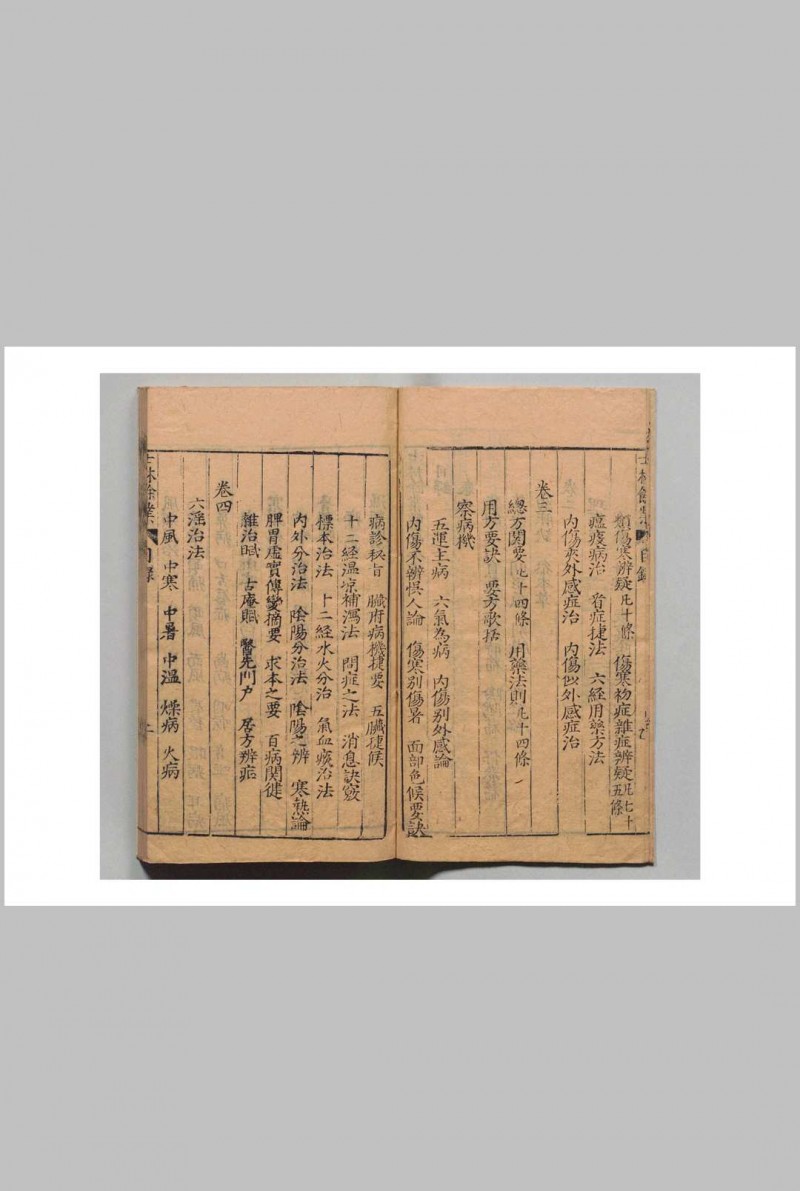 士林餘業 目錄
類傷寒辨疑凡十條 傷寒初症雜症辨疑凡七十五條
瘟疫病治 看症捷法 六經用藥方法
內傷夾外感症治 內傷似外感症治
卷三
總方関要凡十四條 用藥法則凡十四條
用方要訣 要方歌括
察病機
五運主病 六氣為病 內傷別外感論
內傷不辨悞人論 傷寒別傷暑 面部色候要訣
病診秘旨 臟府病機捷要 五臟捷候
十二経溫凉補瀉法 問症之法 消息訣竅
標本治法 十二経水火分治 氣血痰治法
內外分治法 陰陽分治法 陰陽之辨 寒熱論
脾胃虛實傳變摘要 求本之要 百病関鍵
雜治賦 古庵賦 醫先門户 居方辨症
卷四
六淫治法
中風 中寒 中暑 中溫 燥病 火病
士林餘業 目錄 二